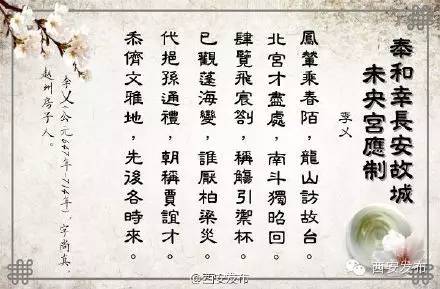 奉和幸長安故城
未央宮應制
李乂
鳳輦乘春陌，龍山訪故台。
北宮才盡處，南斗獨昭回。
肆覽飛宸劄，稱觴引禦杯。
已觀蓬海變，誰厭柏梁災。
代挹孫通禮，朝稱賈誼才。
忝儕文雅地，先後各時來。
李乂(公元647年-716年)，字尚真，
趙州房子人。
@西安发布
西安发布